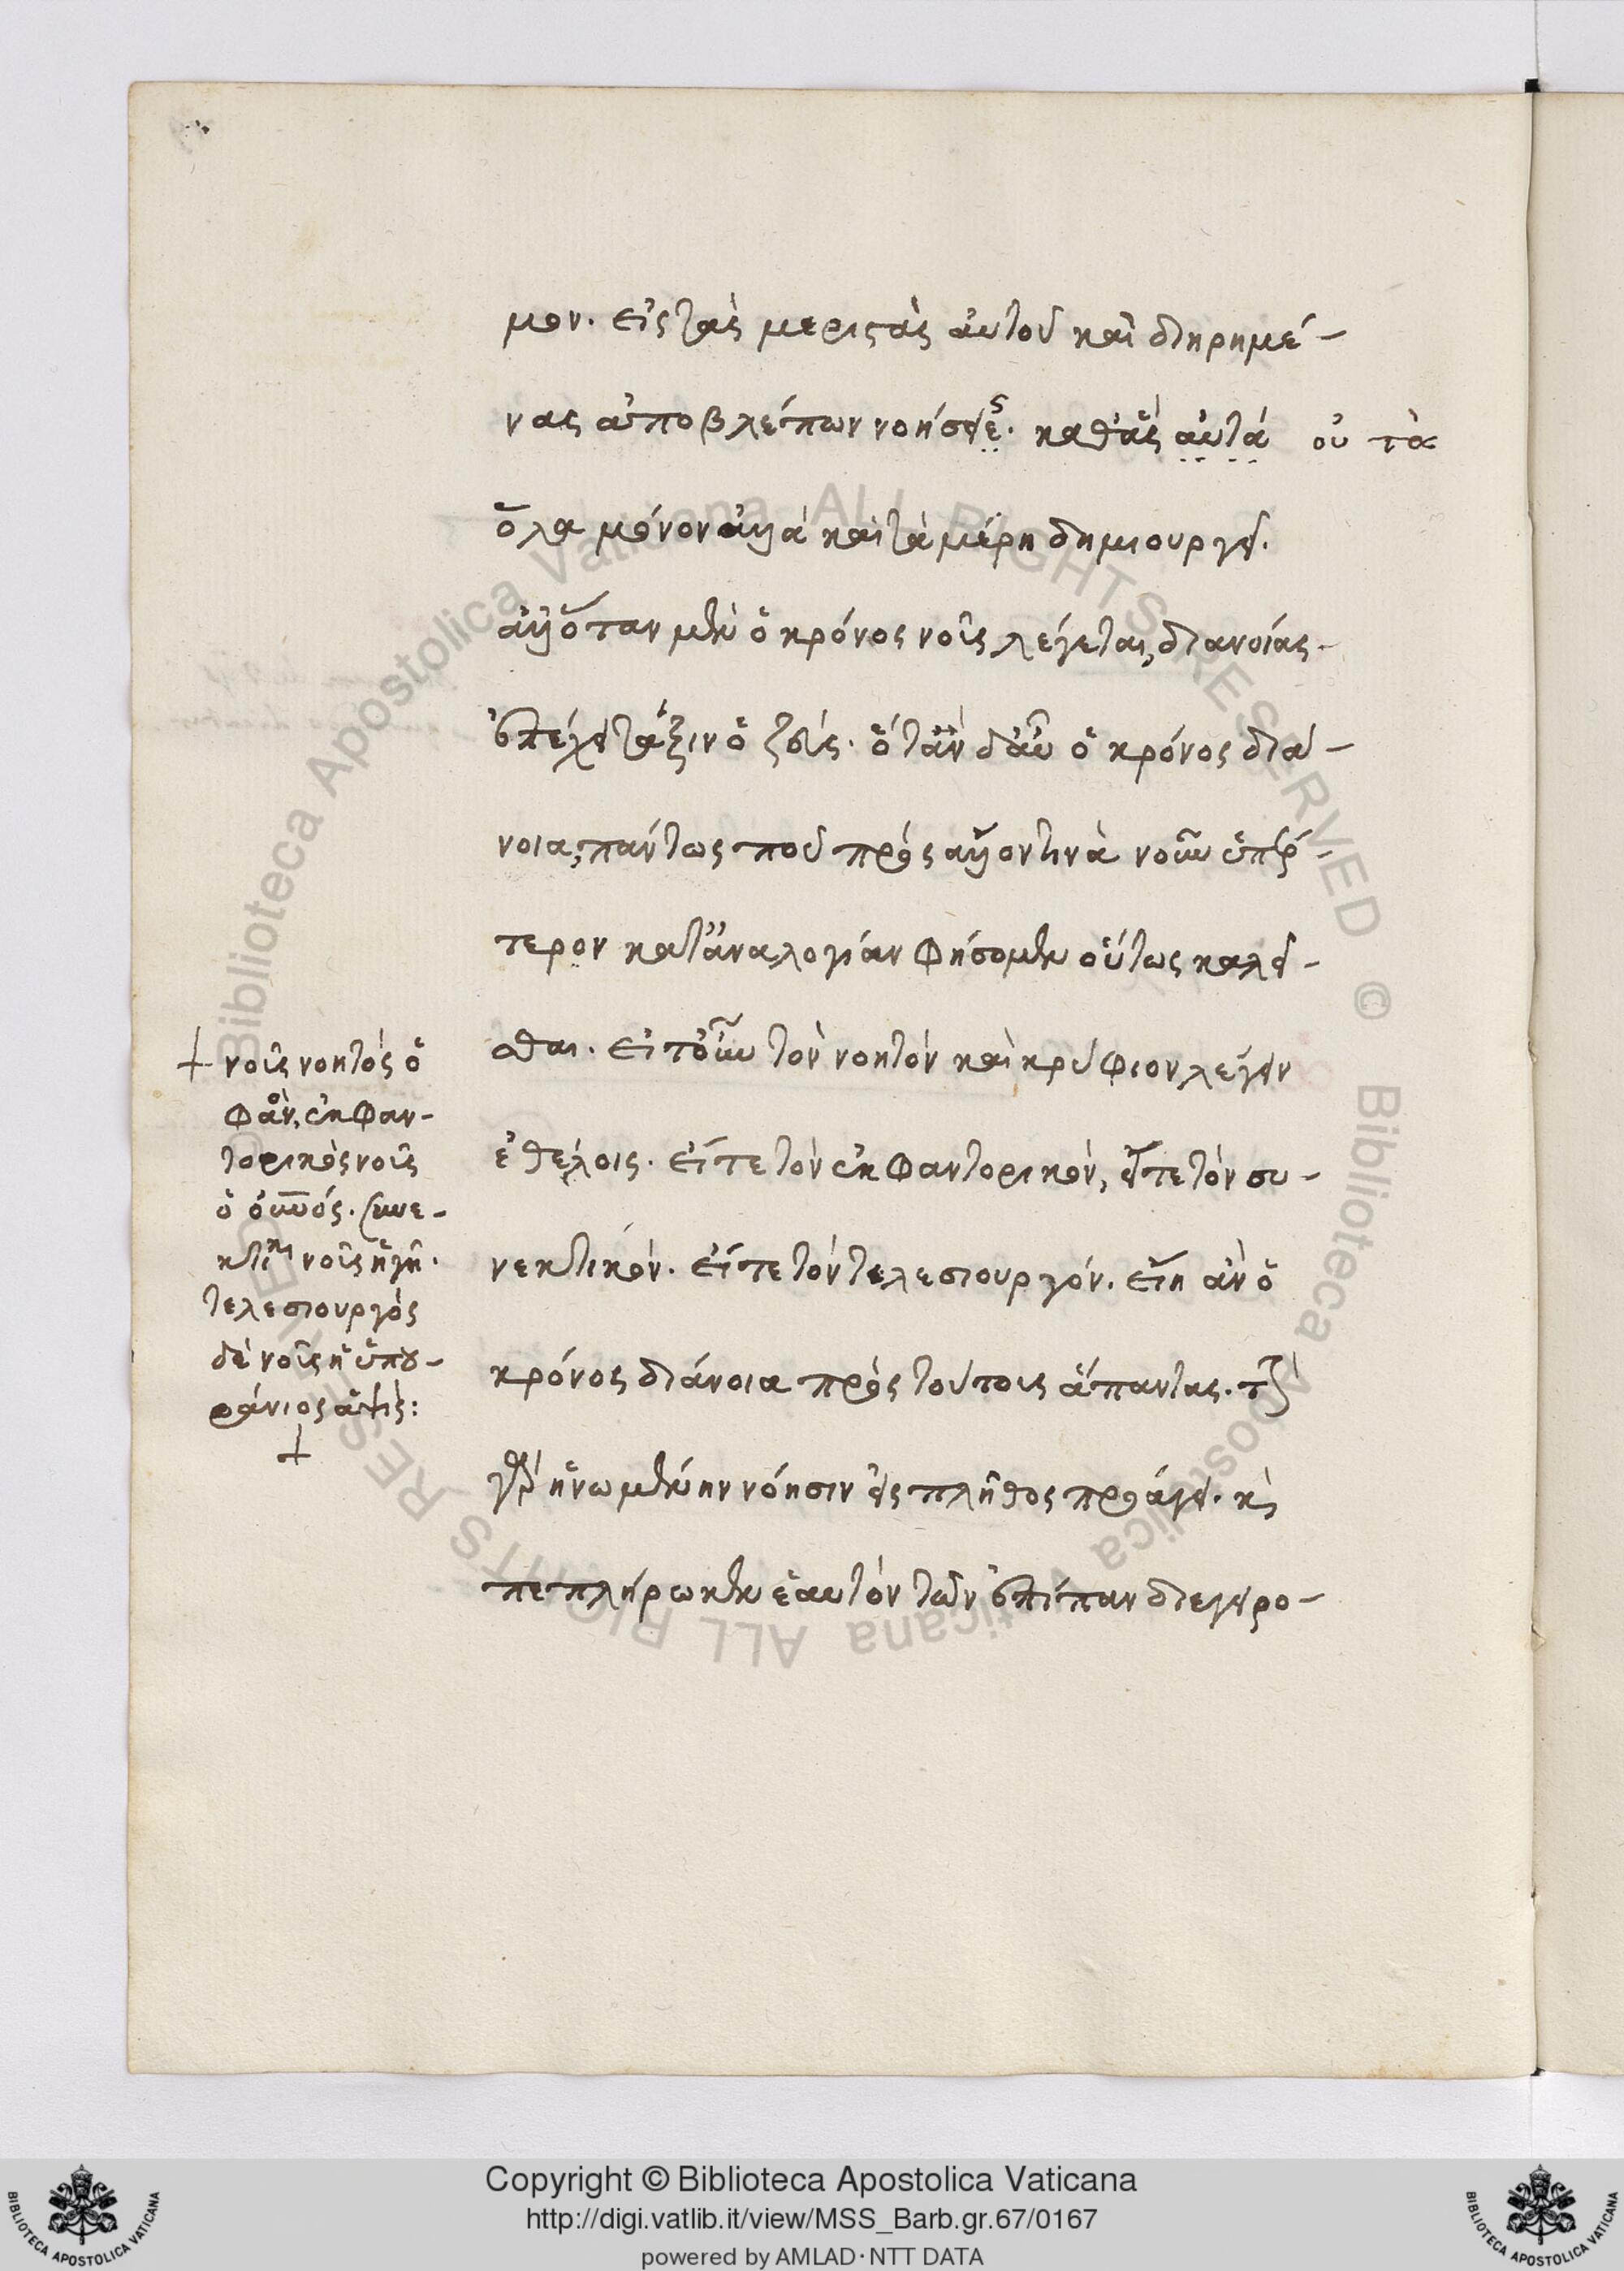 μον. εἰς τὰς μεριστὰς αὐτοῦ καὶ διῃρημέ-
νας ἀποβλέπων νοήσεις. καθ' ἃς αὐτὰ οὐ τὰ
ὅλα μόνον ἀλλὰ καὶ τὰ μέρη δημιουργεῖ.
ἀλλ' ὅταν μὲν ὁ κρόνος νοῦς λέγεται, διανοίας
ἐπέχει τάξιν ὁ ζεύς. ὅταν δ' αὖ ὁ κρόνος διά-
νοια, πάντως που πρὸς ἄλλον τινὰ νοῦν ὑπέρ-
τερον κατ' ἀναλογίαν φήσομεν οὕτως καλεῖ-
σθαι. εἴτ' οὖν τὸν νοητὸν καὶ κρύφιον λέγειν
ἐθέλοις. εἴτε τὸν ἐκφαντορικόν, εἴτε τὸν συ-
νεκτικόν. εἴτε τὸν τελεσιουργόν. εἴη ἂν ὁ
κρόνος διάνοια πρὸς τούτους ἅπαντας. τὴν
γὰρ ἡνωμένην νόησιν εἰς πλῆθος προάγει. κὶ
πεπλήρωκεν ἑαυτὸν τῶν ἐπίπαν διεγειρο-
+ νοῦς νοητὸς ὁ
φάν, ἐκφαν-
τορικὸς νοῦς
ὁ οὐνός. συνε-
κτικ νοῦς ἡ γῆ.
τελεσιουργὸς
δὲ νοῦς ἡ ὑπου-
ράνιος ἁψίς:
+
© Biblioteca Apostolica Vaticana ALL RIGHTS RESERVED © Biblioteca Apostolica Vaticana ALL RIGHTS RESERVED
Copyright © Biblioteca Apostolica Vaticana
http://digi.vatlib.it/view/MSS_Barb.gr.67/0167
powered by AMLAD·NTT DATA
BIBLIOTECA APOSTOLICA VATICANA
BIBLIOTECA APOSTOLICA VATICANA